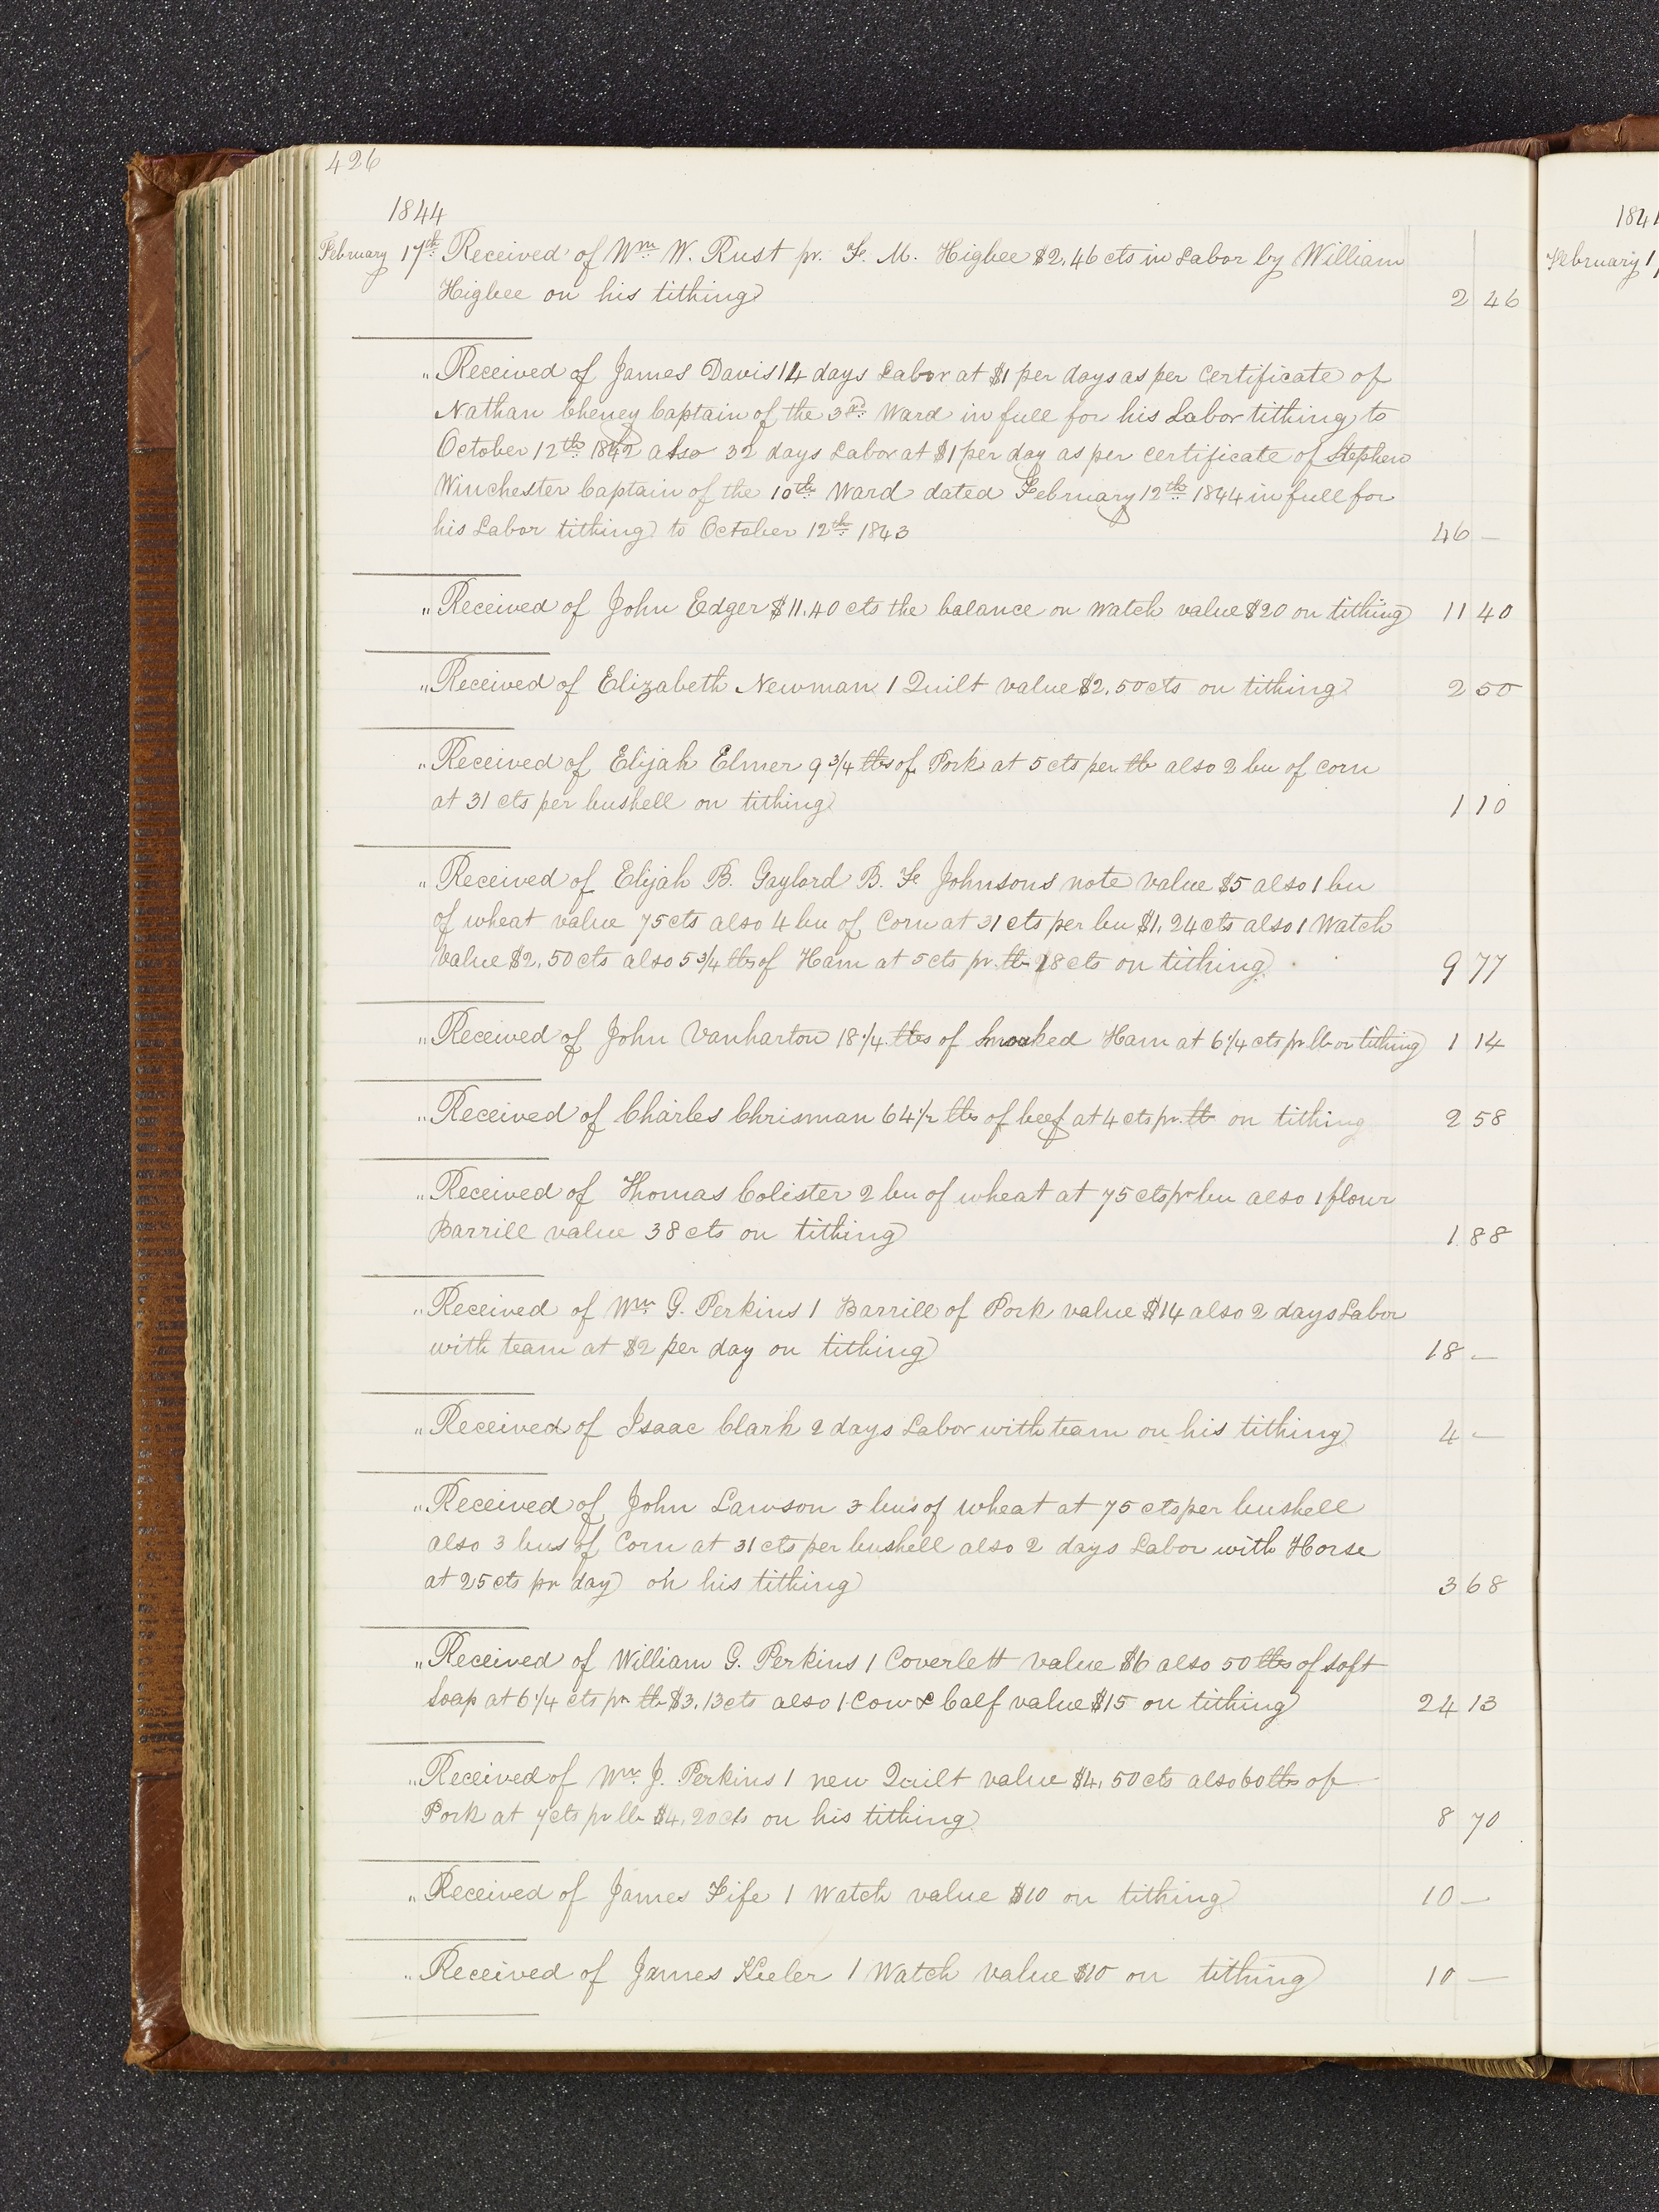 426
1844
February 17th Received of Wm W. Rust pr. F. M. Higbee $2,46 cts in Labor by William
Higbee on his tithing 2 46
" Received of James Davis 14 days Labor at $1 per days as per Certificate of
Nathan Cheney Captain of the 3rd Ward in full for his Labor tithing to
October 12th 1842 also 32 days Labor at $1 per day as per certificate of Stephen
Winchester Captain of the 10th Ward dated February 12th 1844 in full for
his Labor tithing to October 12th 1843 46 —
" Received of John Edger $11.40 cts the balance on Watch value $20 on tithing 11 40
" Received of Elizabeth Newman 1 Quilt value $2,50 cts on tithing 2 50
" Received of Elijah Elmer 9 3/4 lbs of Pork at 5 cts per lb also 2 bu of corn
at 31 cts per bushell on tithing 1 10
" Received of Elijah B. Gaylord B. F. Johnsons note value $5 also 1 bu
of wheat value 75 cts also 4 bu of Corn at 31 cts per bu $1,24 cts also 1 Watch
value $2,50 cts also 5 3/4 lbs of Ham at 5 cts pr. lb 28 cts on tithing 9 77
" Received of John Vanharton 18 1/4 lbs of Smoaked Ham at 6 1/4 cts pr lb on tithing 1 14
" Received of Charles Chrisman 64 1/2 lbs of beef at 4 cts pr. lb on tithing 2 58
" Received of Thomas Colister 2 bu of wheat at 75 cts pr bu also 1 flour
Barrill value 38 cts on tithing 1 88
" Received of Wm G. Perkins 1 Barrill of Pork value $14 also 2 days Labor
with team at $2 per day on tithing 18 —
" Received of Isaac Clark 2 days Labor with team on his tithing 4 —
" Received of John Lawson 3 bus of wheat at 75 cts per bushell
also 3 bus of Corn at 31 cts per bushell also 2 days Labor with Horse
at 25 cts pr day on his tithing 3 68
" Received of William G. Perkins 1 Coverlett value $6 also 50 lbs of soft
Soap at 6 1/4 cts pr lb $3,13 cts also 1 Cow & Calf value $15 on tithing 24 13
" Received of Wm J. Perkins 1 new Quilt value $4,50 cts also 60 lbs of
Pork at 7 cts pr lb $4,20 cts on his tithing 8 70
" Received of James Fife 1 Watch value $10 on tithing 10 —
" Received of James Keeler 1 Watch value $10 on tithing 10 —
184
February 1